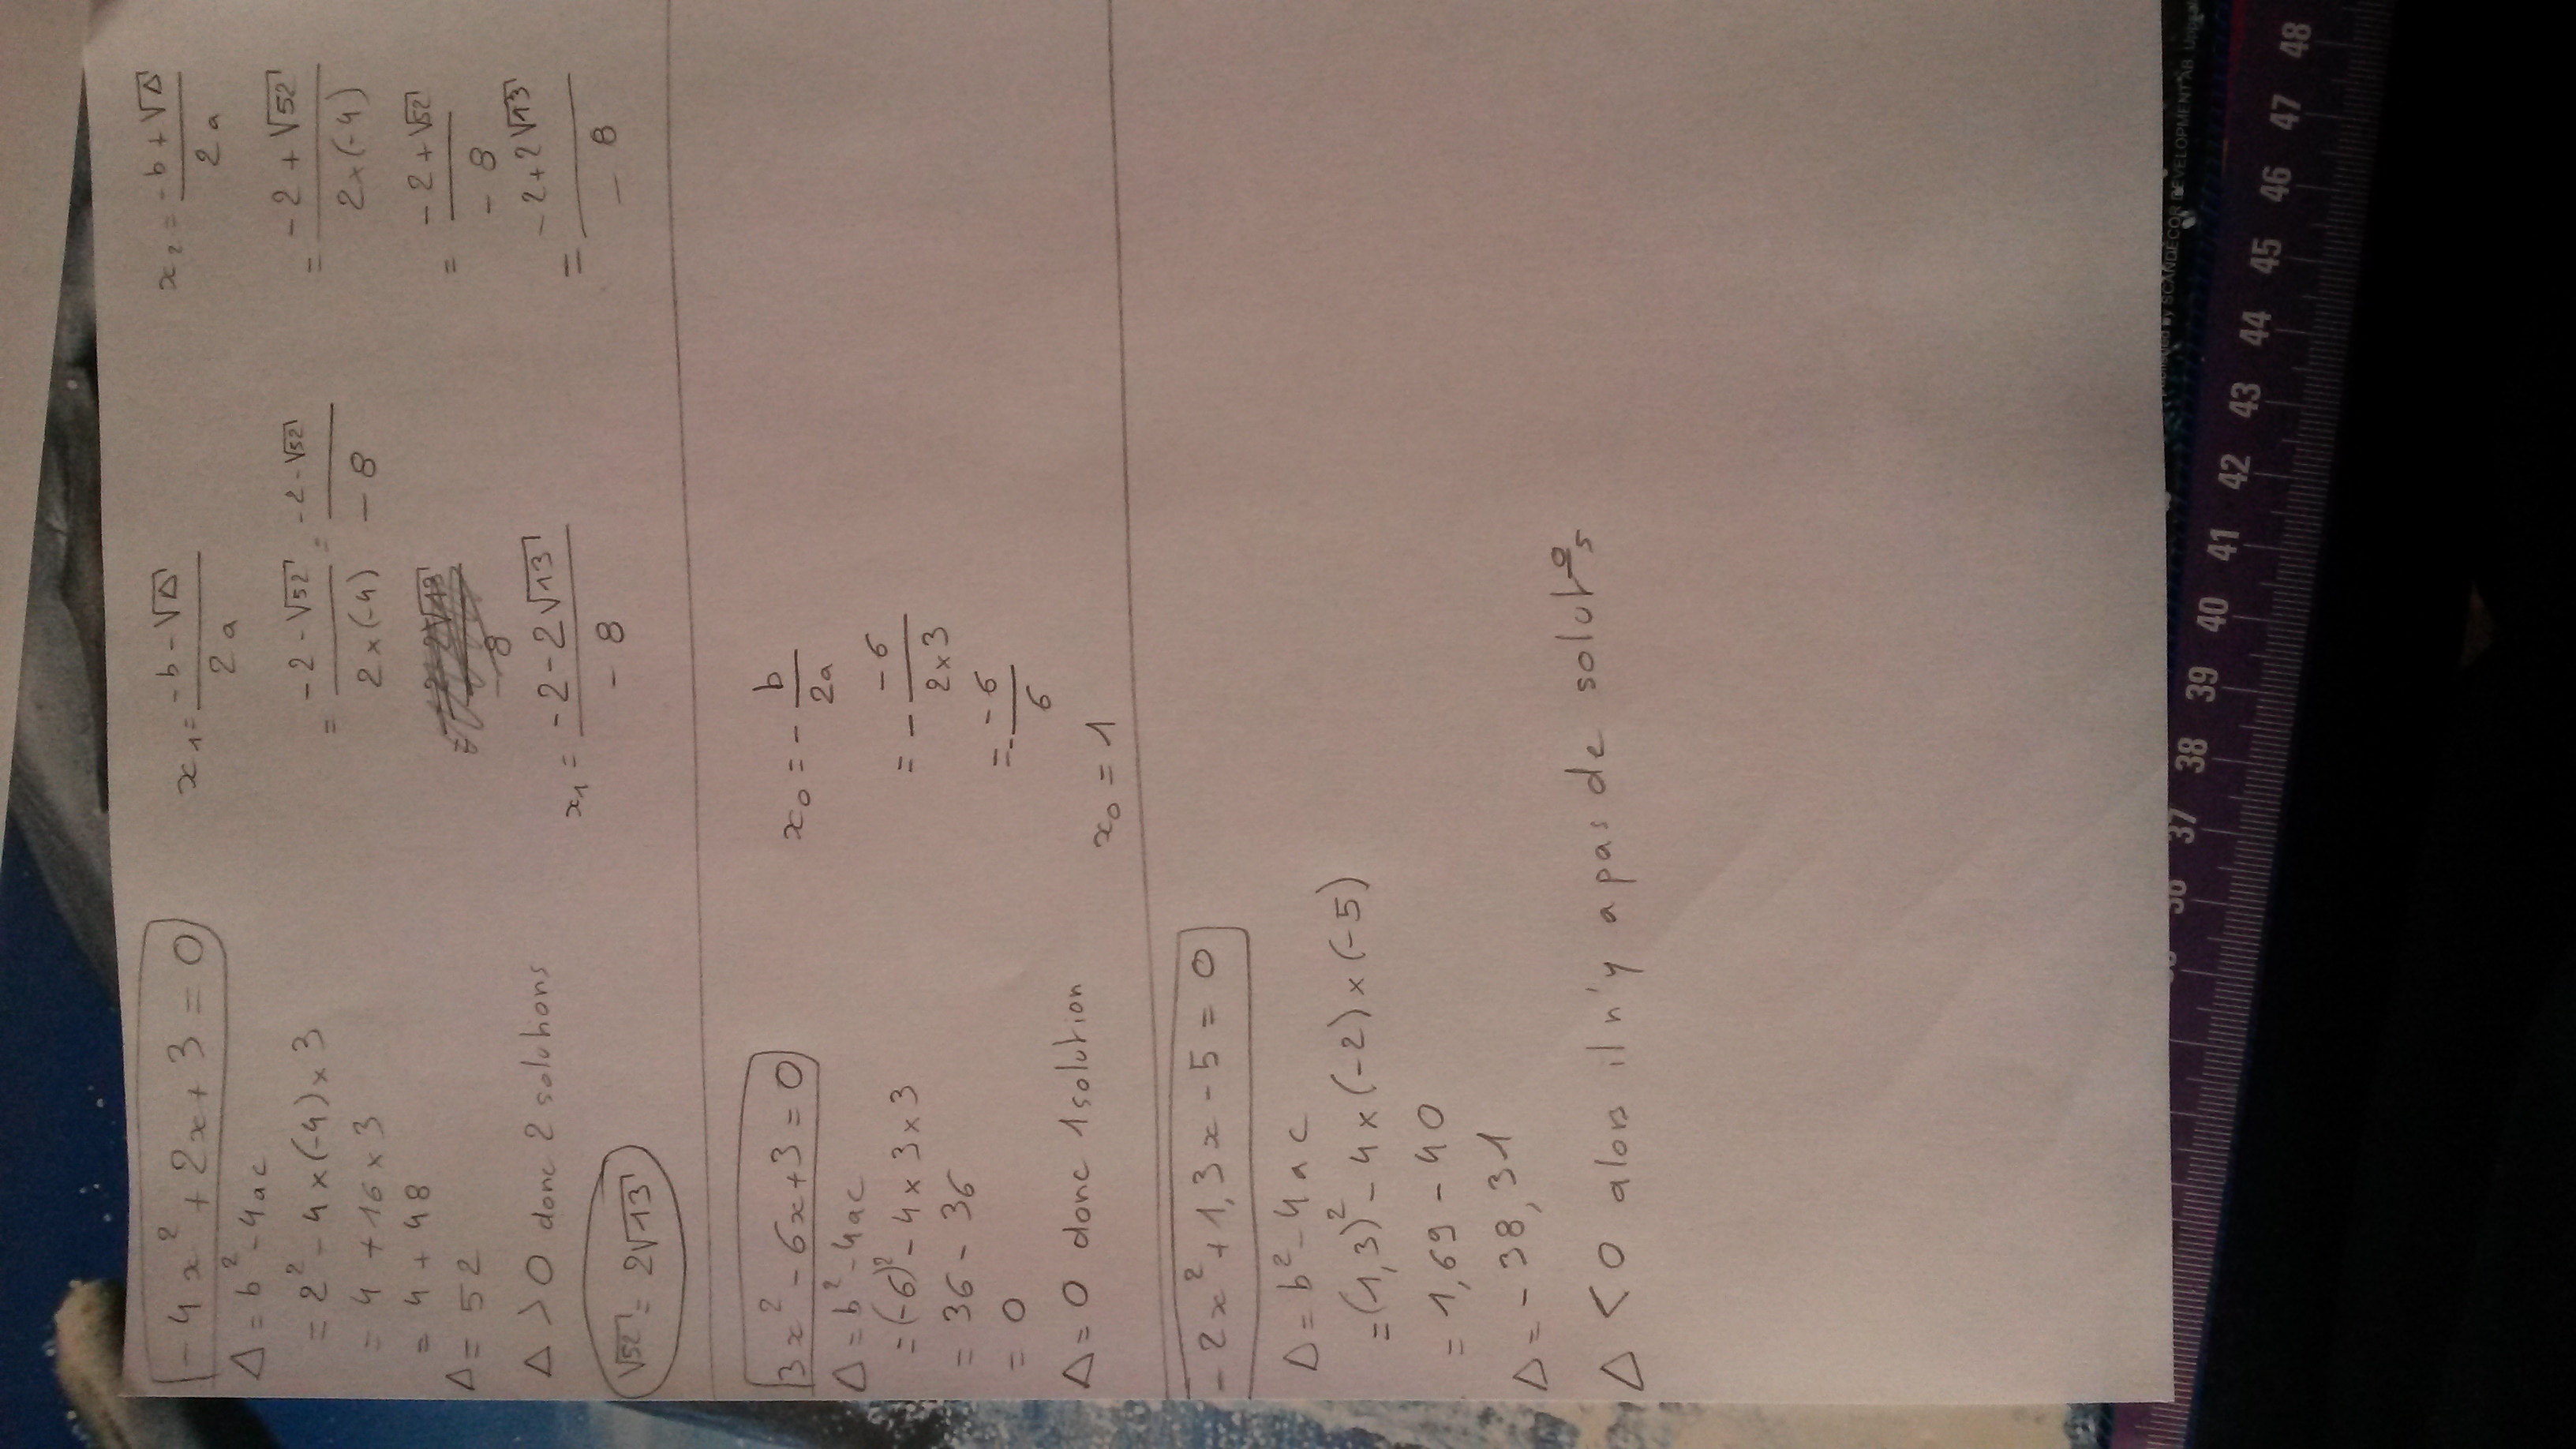 -4x² + 2x + 3 = 0
Δ = b² - 4ac
= 2² - 4 × (-4) × 3
= 4 + 16 × 3
= 4 + 48
Δ = 52
Δ > 0 donc 2 solutions
√52 = 2√13
x₁ = (-b - √Δ) / 2a
= (-2 - √52) / (2 × (-4)) = (-2 - √52) / -8
x₁ = (-2 - 2√13) / -8
x₂ = (-b + √Δ) / 2a
= (-2 + √52) / (2 × (-4))
= (-2 + √52) / -8
= (-2 + 2√13) / -8
3x² - 6x + 3 = 0
Δ = b² - 4ac
= (-6)² - 4 × 3 × 3
= 36 - 36
= 0
Δ = 0 donc 1 solution
x₀ = - b / 2a
= - -6 / (2 × 3)
= - -6 / 6
x₀ = 1
-2x² + 1,3x - 5 = 0
Δ = b² - 4ac
= (1,3)² - 4 × (-2) × (-5)
= 1,69 - 40
Δ = -38,31
Δ < 0 alors il n'y a pas de solut°s
36 37 38 39 40 41 42 43 44 45 46 47 48
by SCANDECOR DEVELOPMENT AB